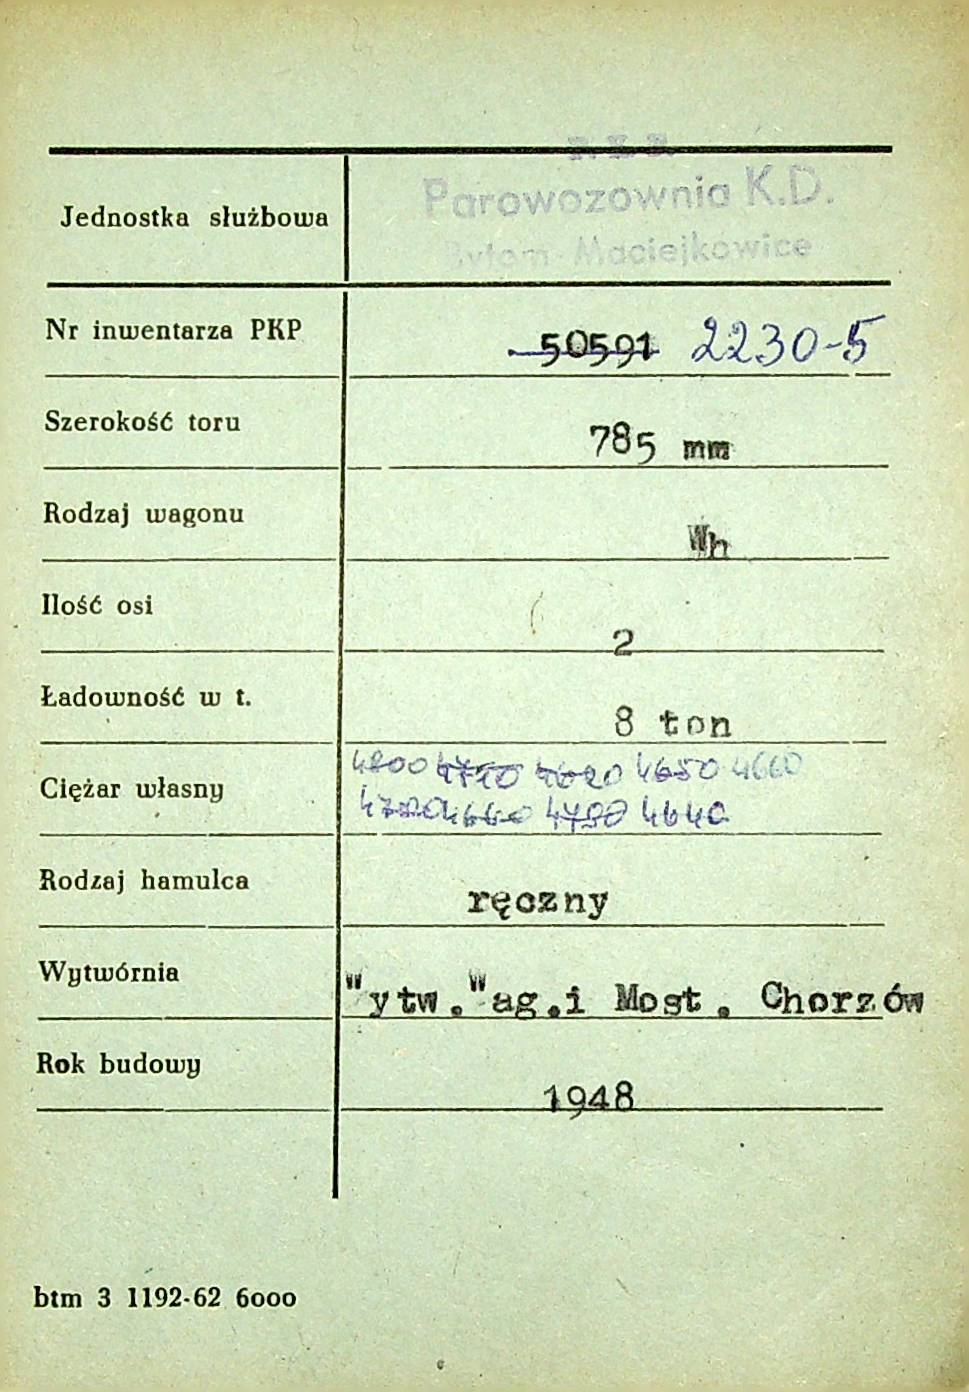 P. K. P.
Parowozownia K.D.
Bytom Maciejkowice
Jednostka służbowa
Nr inwentarza PKP 50591 2230-5
Szerokość toru 785 mm
Rodzaj wagonu Wh
Ilość osi 2
Ładowność w t. 8 ton
4800 4710 4620 4650 4660
Ciężar własny
4780 4660 4790 4640
Rodzaj hamulca ręczny
Wytwórnia "ytw."ag.i Most. Chorzów
Rok budowy 1948
btm 3 1192-62 6000